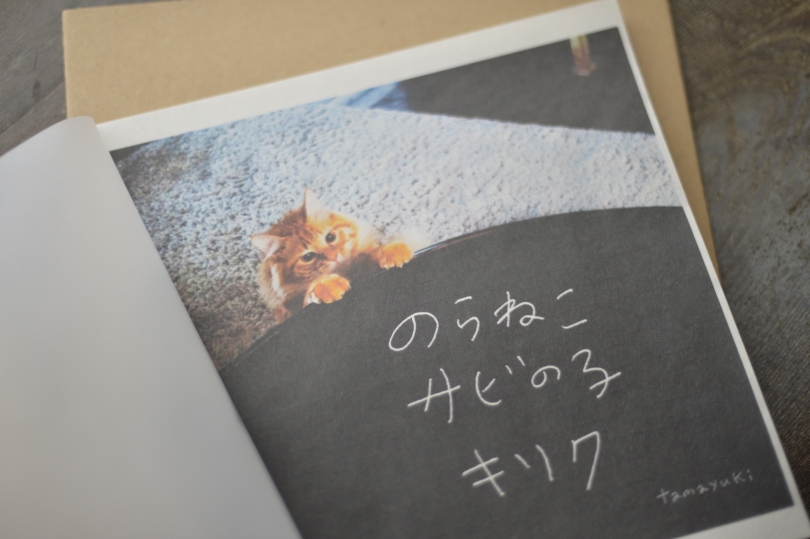 のらねこ
サビの子
キリク
tamayuki